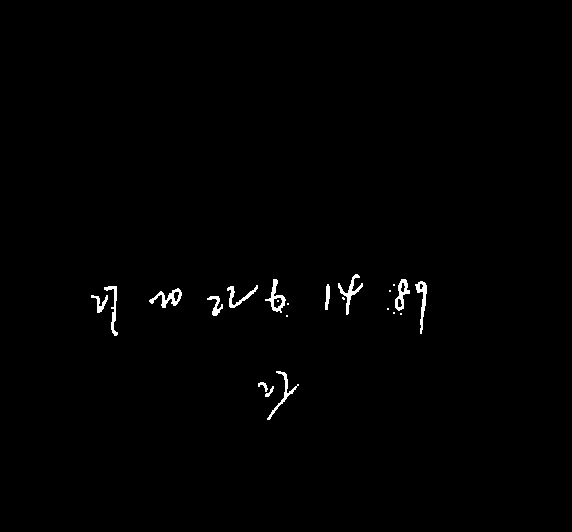 27 20 22 6 14 89
27